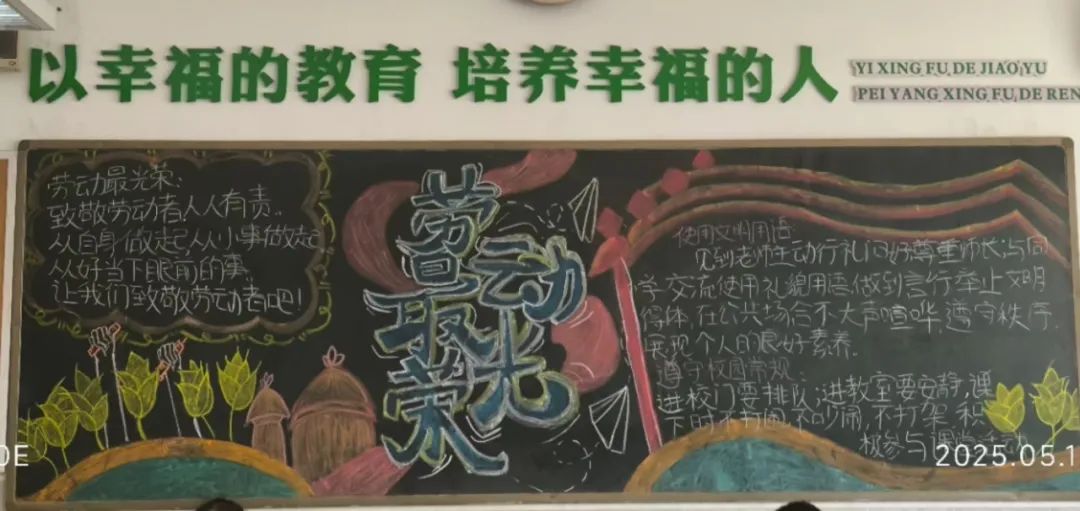 以幸福的教育 培养幸福的人
YI XING FU DE JIAO YU
PEI YANG XING FU DE REN
劳动最光荣:
致敬劳动者人人有责..
从自身做起从小事做起
从好当下眼前的事
让我们致敬劳动者吧!
劳动最光荣
使用文明用语:
见到老师主动行礼问好尊重师长;与同
学交流使用礼貌用语,做到言行举止文明
得体,在公共场合不大声喧哗,遵守秩序,
展现个人的良好素养.
遵守校园常规:
进校门要排队;进教室要安静,课
下时不打闹,不吵闹,不打架,积
极参与课堂活动
0E
2025.05.1